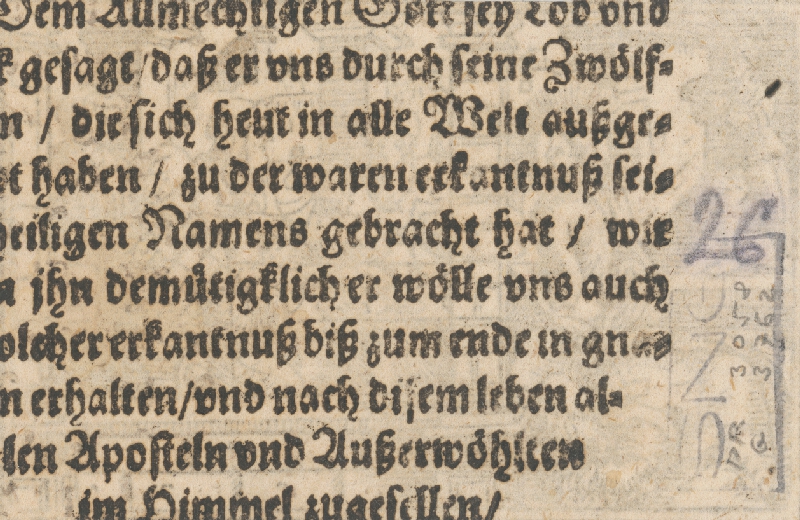 Dem Allmechtigen Gott sey Lob vnd
gesagt / daß er vns durch seine Zwölf-
/ die sich heut in alle Welt außge-
haben / zu der waren erkantnuß sei-
heiligen Namens gebracht hat / wir
jhn demütigklich er wölle vns auch
solcher erkantnuß biß zum ende in gna-
erhalten / vnd nach disem leben al-
len Aposteln vnd Außerwöhlten
im Himmel zugesellen /
26